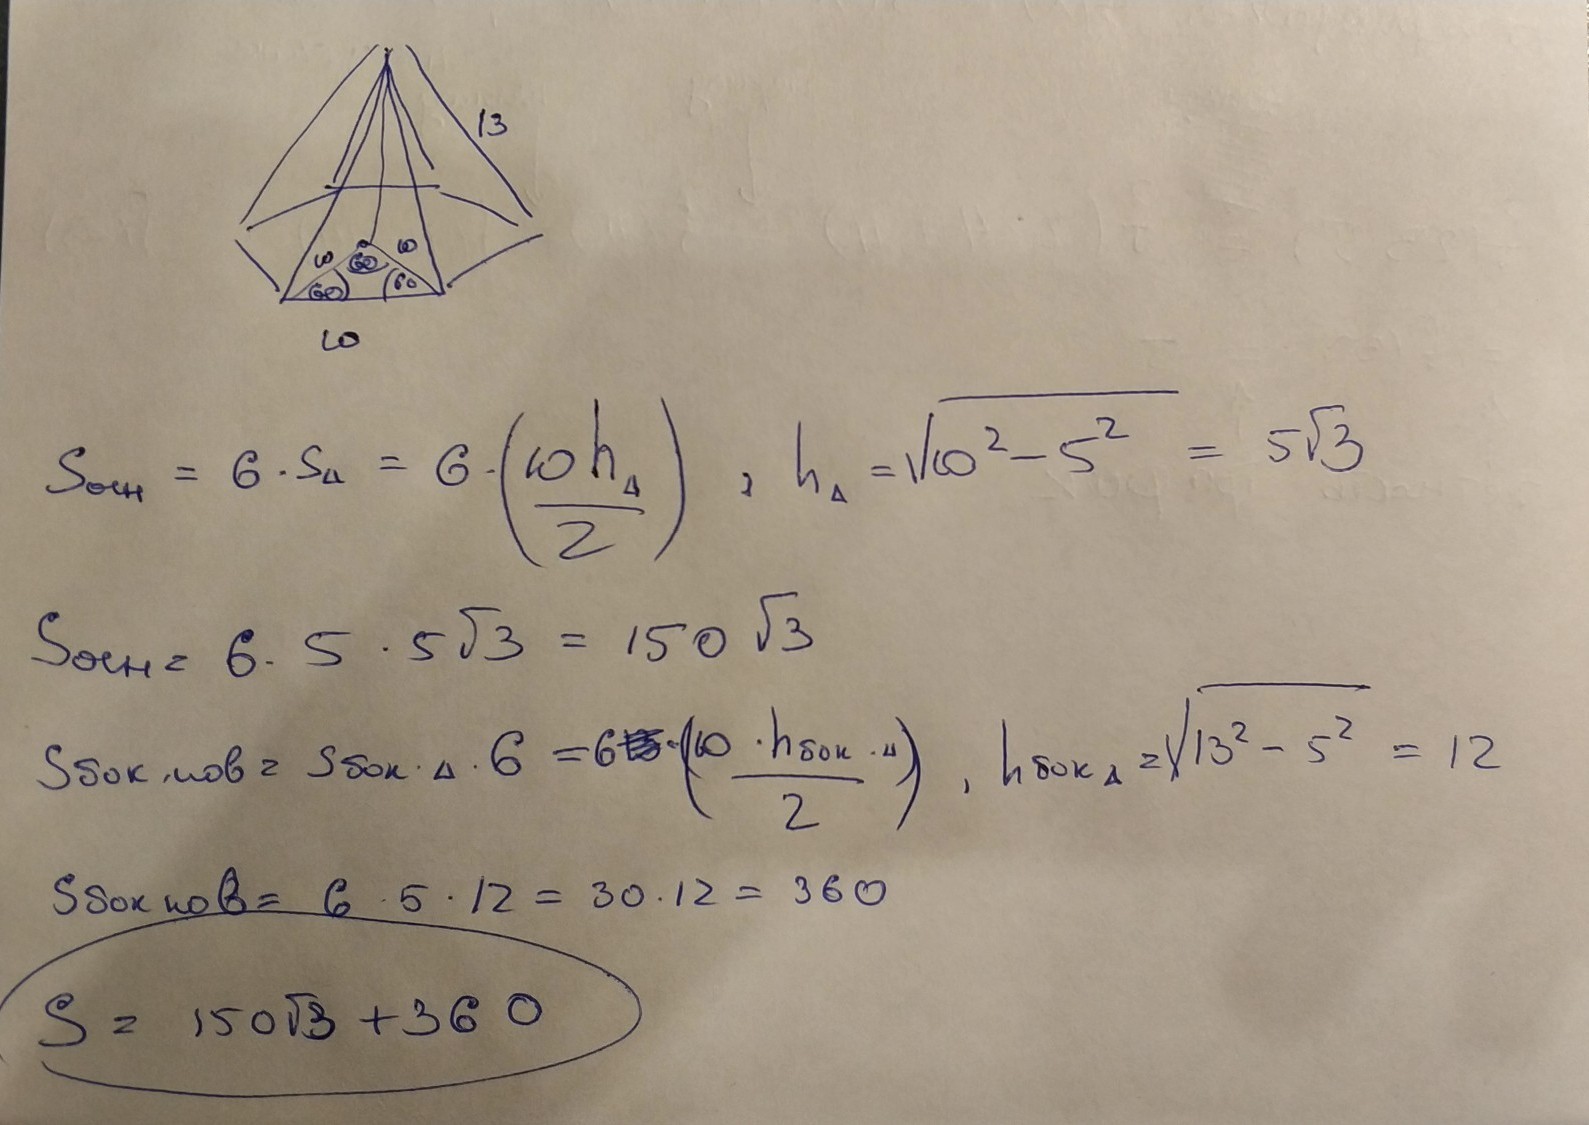 13
10 60 10
60 60
10
Sосн = 6 · S△ = 6 · (10h△/2) , h△ = √(10² − 5²) = 5√3
Sосн = 6 · 5 · 5√3 = 150√3
Sбок.пов = Sбок.△ · 6 = 6 · (10 · hбок.△/2) , hбок△ = √(13² − 5²) = 12
Sбокпов = 6 · 5 · 12 = 30 · 12 = 360
S = 150√3 + 360